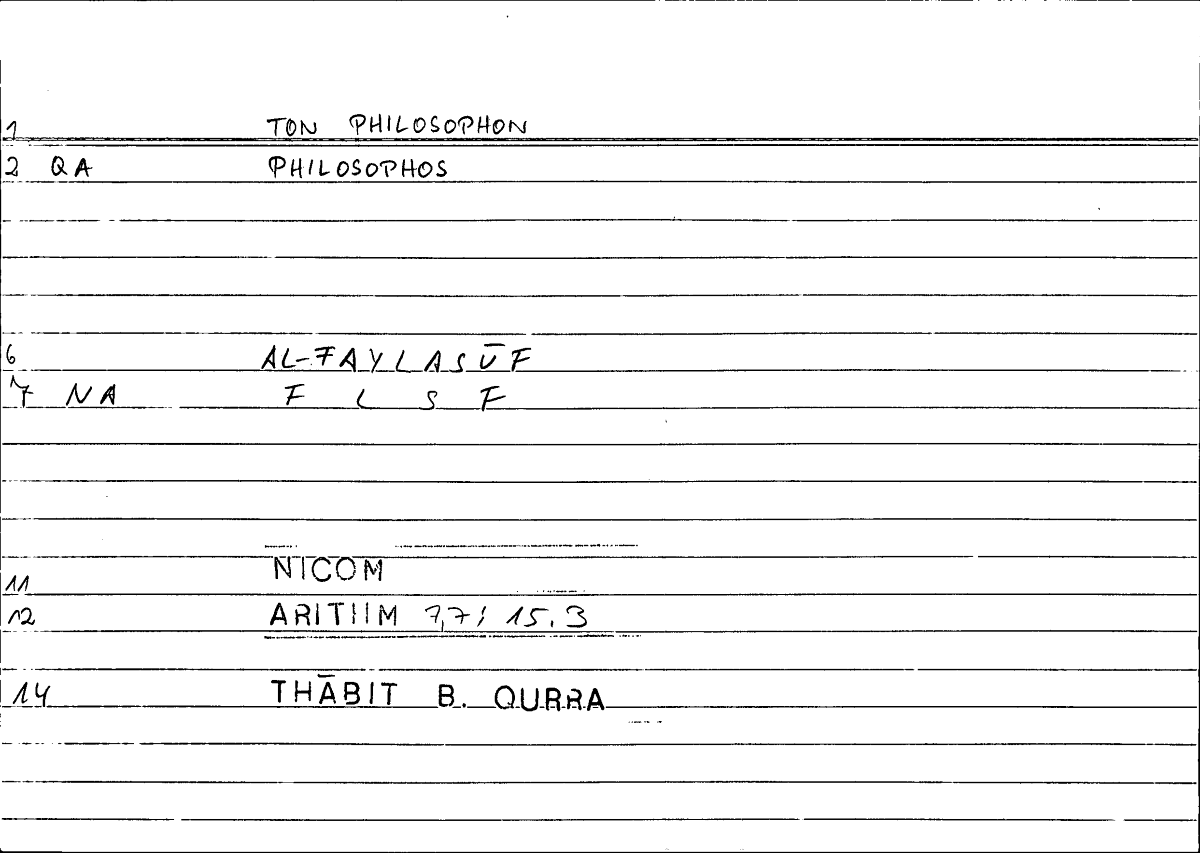 1 TON PHILOSOPHON
2 QA PHILOSOPHOS
6 AL-FAYLASŪF
7 NA F L S F
11 NICOM
12 ARITIIM 7,7; 15.3
14 THĀBIT B. QURRA